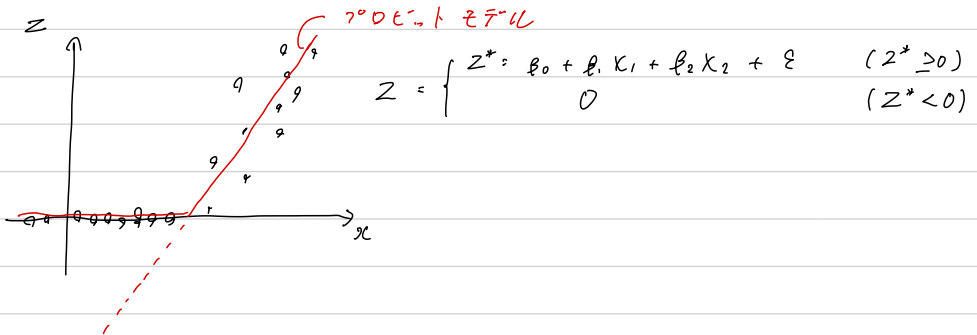 プロビットモデル
Z
Z = { Z* = β₀ + β₁ X₁ + β₂ X₂ + ε (Z* ≥ 0)
0 (Z* < 0)
x